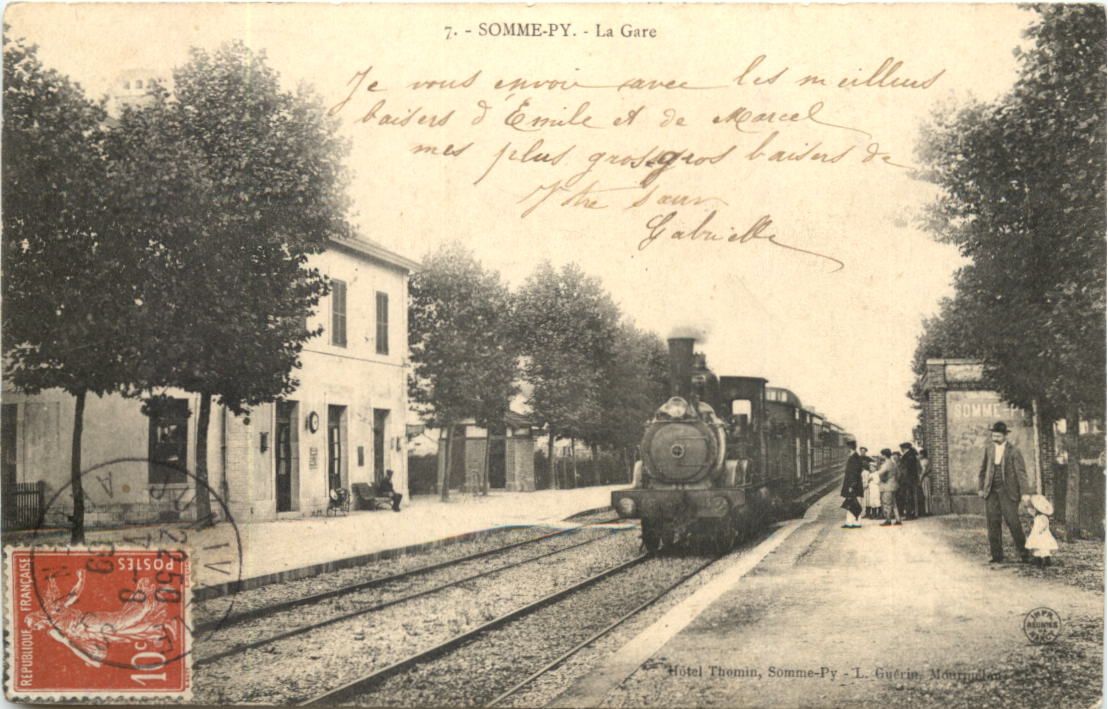 7. - SOMME-PY. - La Gare
Je vous envoie avec les meilleurs
baisers d'Émile et de Marcel
mes plus gros gros baisers de
Votre sœur
Gabrielle
SOMME-PY
POSTES
RÉPUBLIQUE FRANÇAISE
10c
22 50
IMPS
RÉUNIES
NANCY
Hôtel Thomin, Somme-Py - L. Guérin, Mourmelon